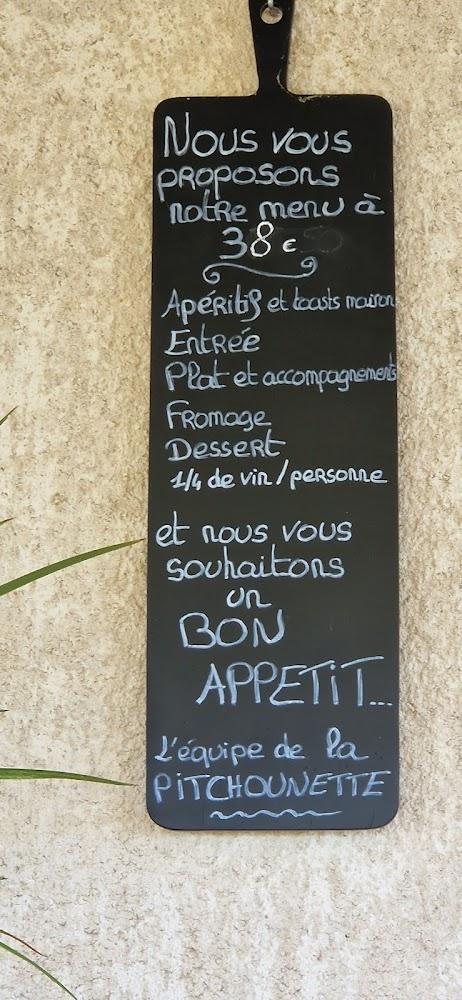 Nous vous
proposons
notre menu à
38 €
Apéritifs et toasts maison
Entrée
Plat et accompagnements
Fromage
Dessert
1/4 de vin / personne
et nous vous
souhaitons
un
BON
APPETIT...
L'équipe de la
PITCHOUNETTE